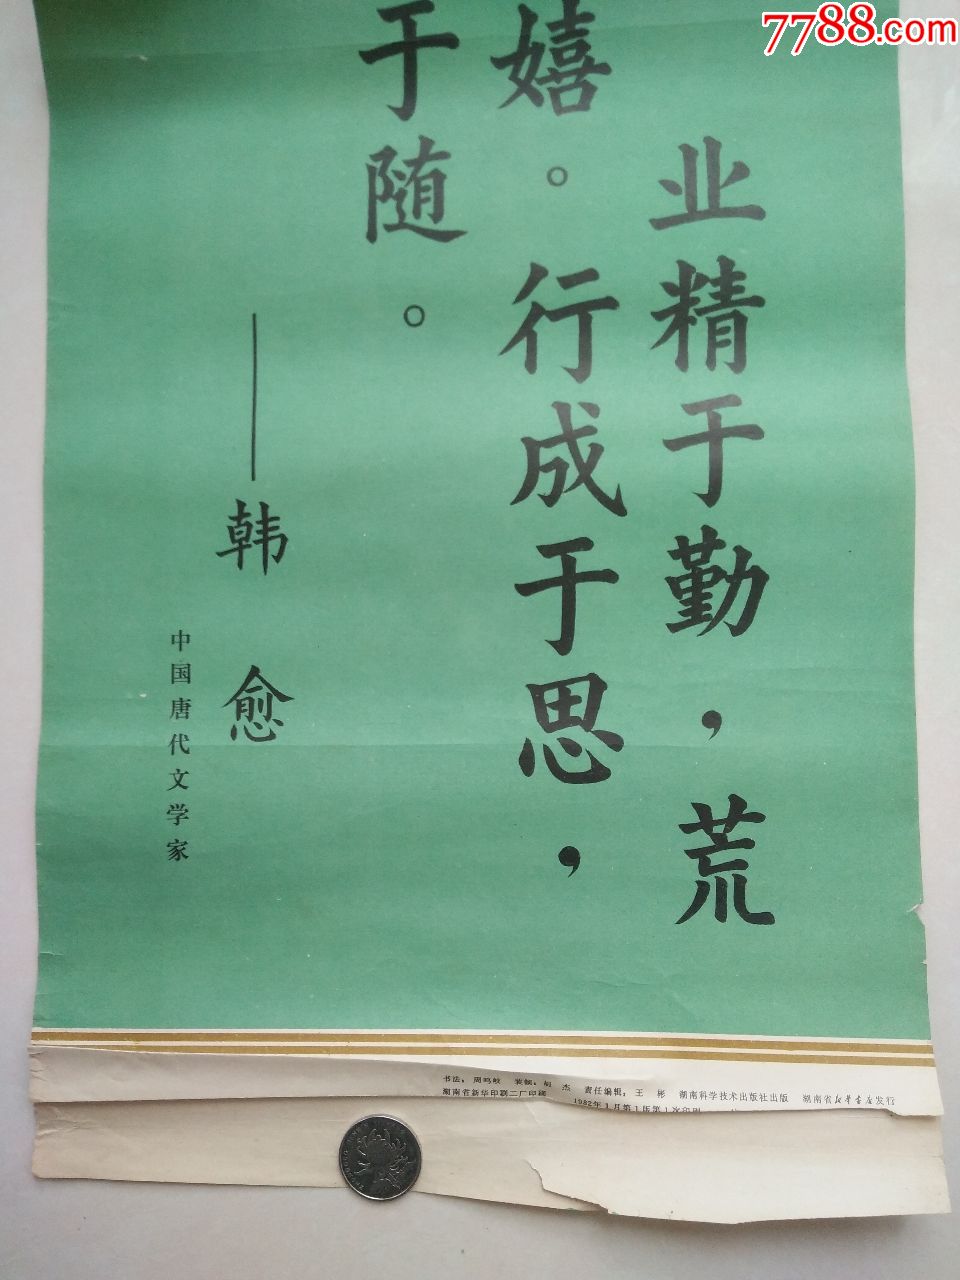 7788.com
业精于勤，荒
嬉。行成于思，
于随。
——韩愈
中国唐代文学家
书法：周鸣岐 装帧：胡杰 责任编辑：王彬 湖南科学技术出版社出版 湖南省新华书店发行
湖南省新华印刷二厂印刷 1982年1月第1版第1次印刷